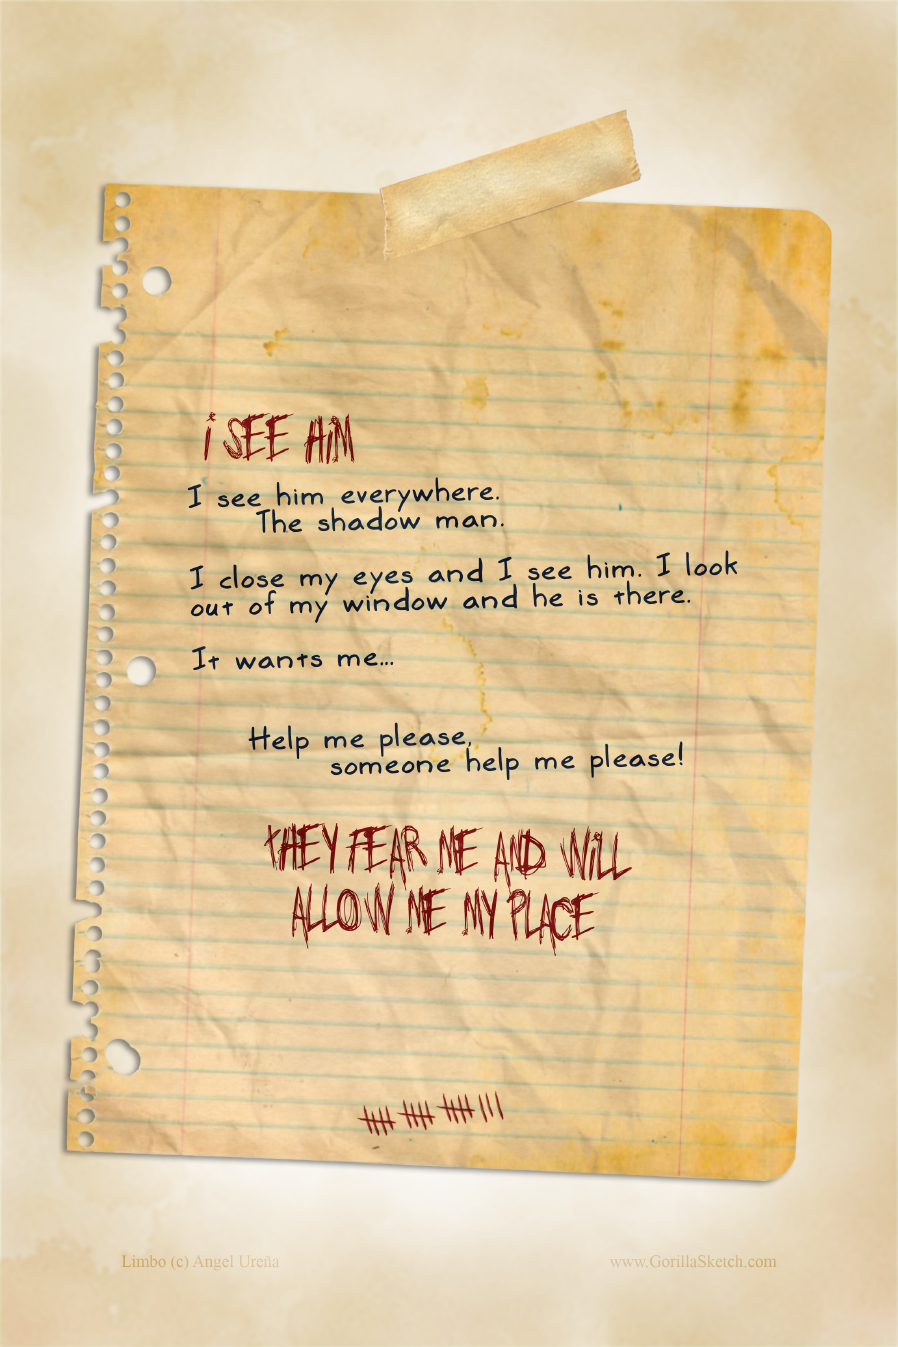 i SEE HiM
I see him everywhere.
The shadow man.
I close my eyes and I see him. I look
out of my window and he is there.
It wants me...
Help me please,
someone help me please!
tHEY FEAR ME AND WiLL
ALLOW ME MY PLACE
Limbo (c) Angel Ureña
www.GorillaSketch.com